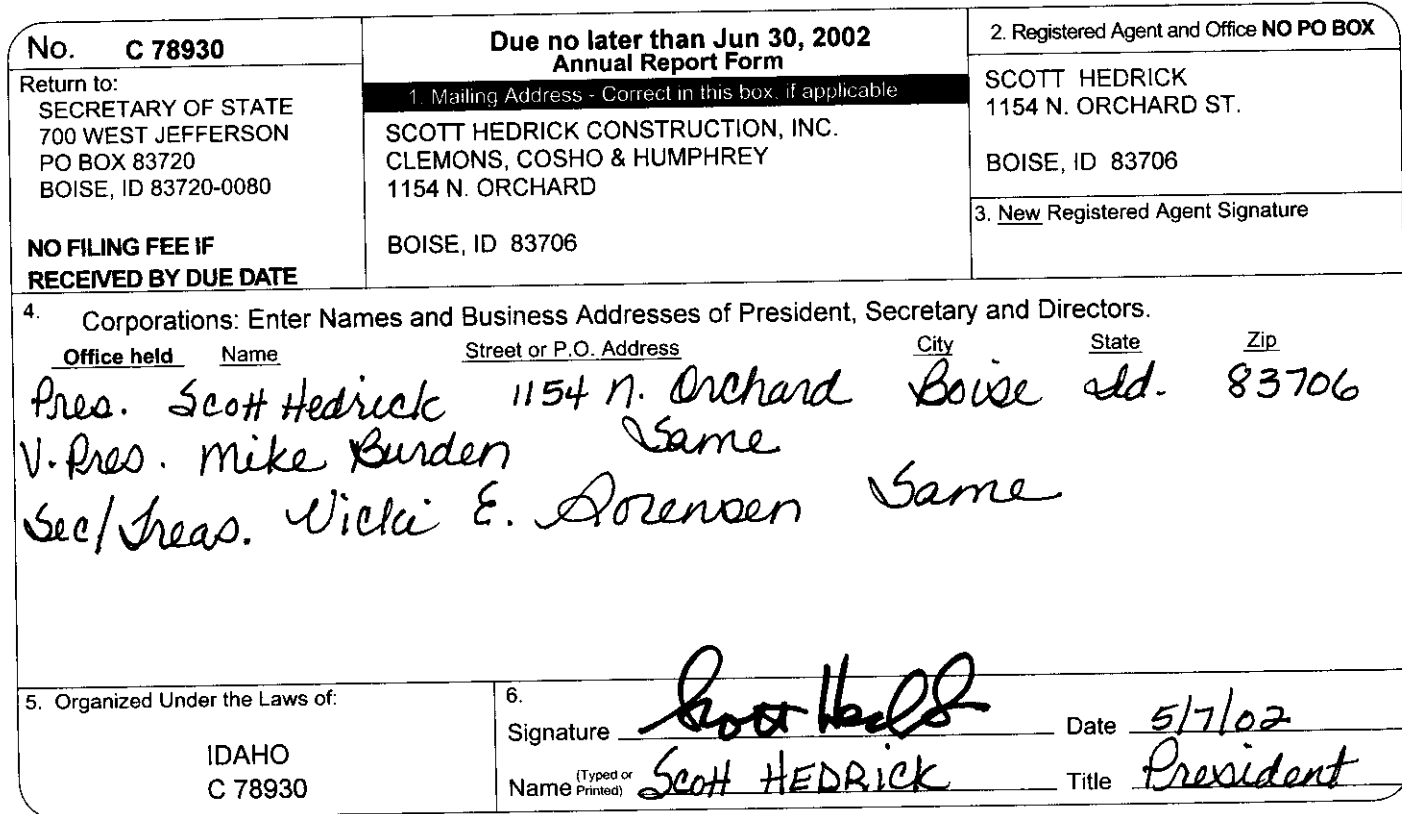 No. C 78930
Return to:
SECRETARY OF STATE
700 WEST JEFFERSON
PO BOX 83720
BOISE, ID 83720-0080
NO FILING FEE IF
RECEIVED BY DUE DATE
Due no later than Jun 30, 2002
Annual Report Form
1. Mailing Address - Correct in this box, if applicable
SCOTT HEDRICK CONSTRUCTION, INC.
CLEMONS, COSHO & HUMPHREY
1154 N. ORCHARD
BOISE, ID 83706
2. Registered Agent and Office NO PO BOX
SCOTT HEDRICK
1154 N. ORCHARD ST.
BOISE, ID 83706
3. New Registered Agent Signature
4. Corporations: Enter Names and Business Addresses of President, Secretary and Directors.
Office held Name Street or P.O. Address City State Zip
Pres. Scott Hedrick 1154 N. Orchard Boise Id. 83706
V. Pres. Mike Burden Same
Sec/Treas. Vicki E. Sorensen Same
5. Organized Under the Laws of:
IDAHO
C 78930
6.
Signature Scott Hedrick Date 5/7/02
Name (Typed or Printed) Scott HEDRICK Title President